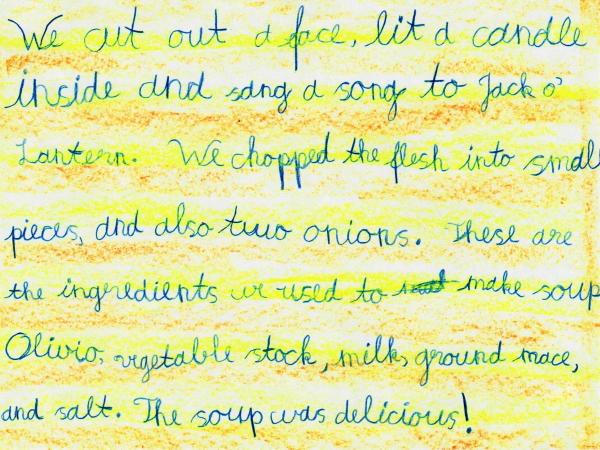 We cut out a face, lit a candle
inside and sang a song to Jack o'
Lantern. We chopped the flesh into small
pieces, and also two onions. These are
the ingredients we used to make soup
Olivio, vegetable stock, milk, ground mace,
and salt. The soup was delicious!